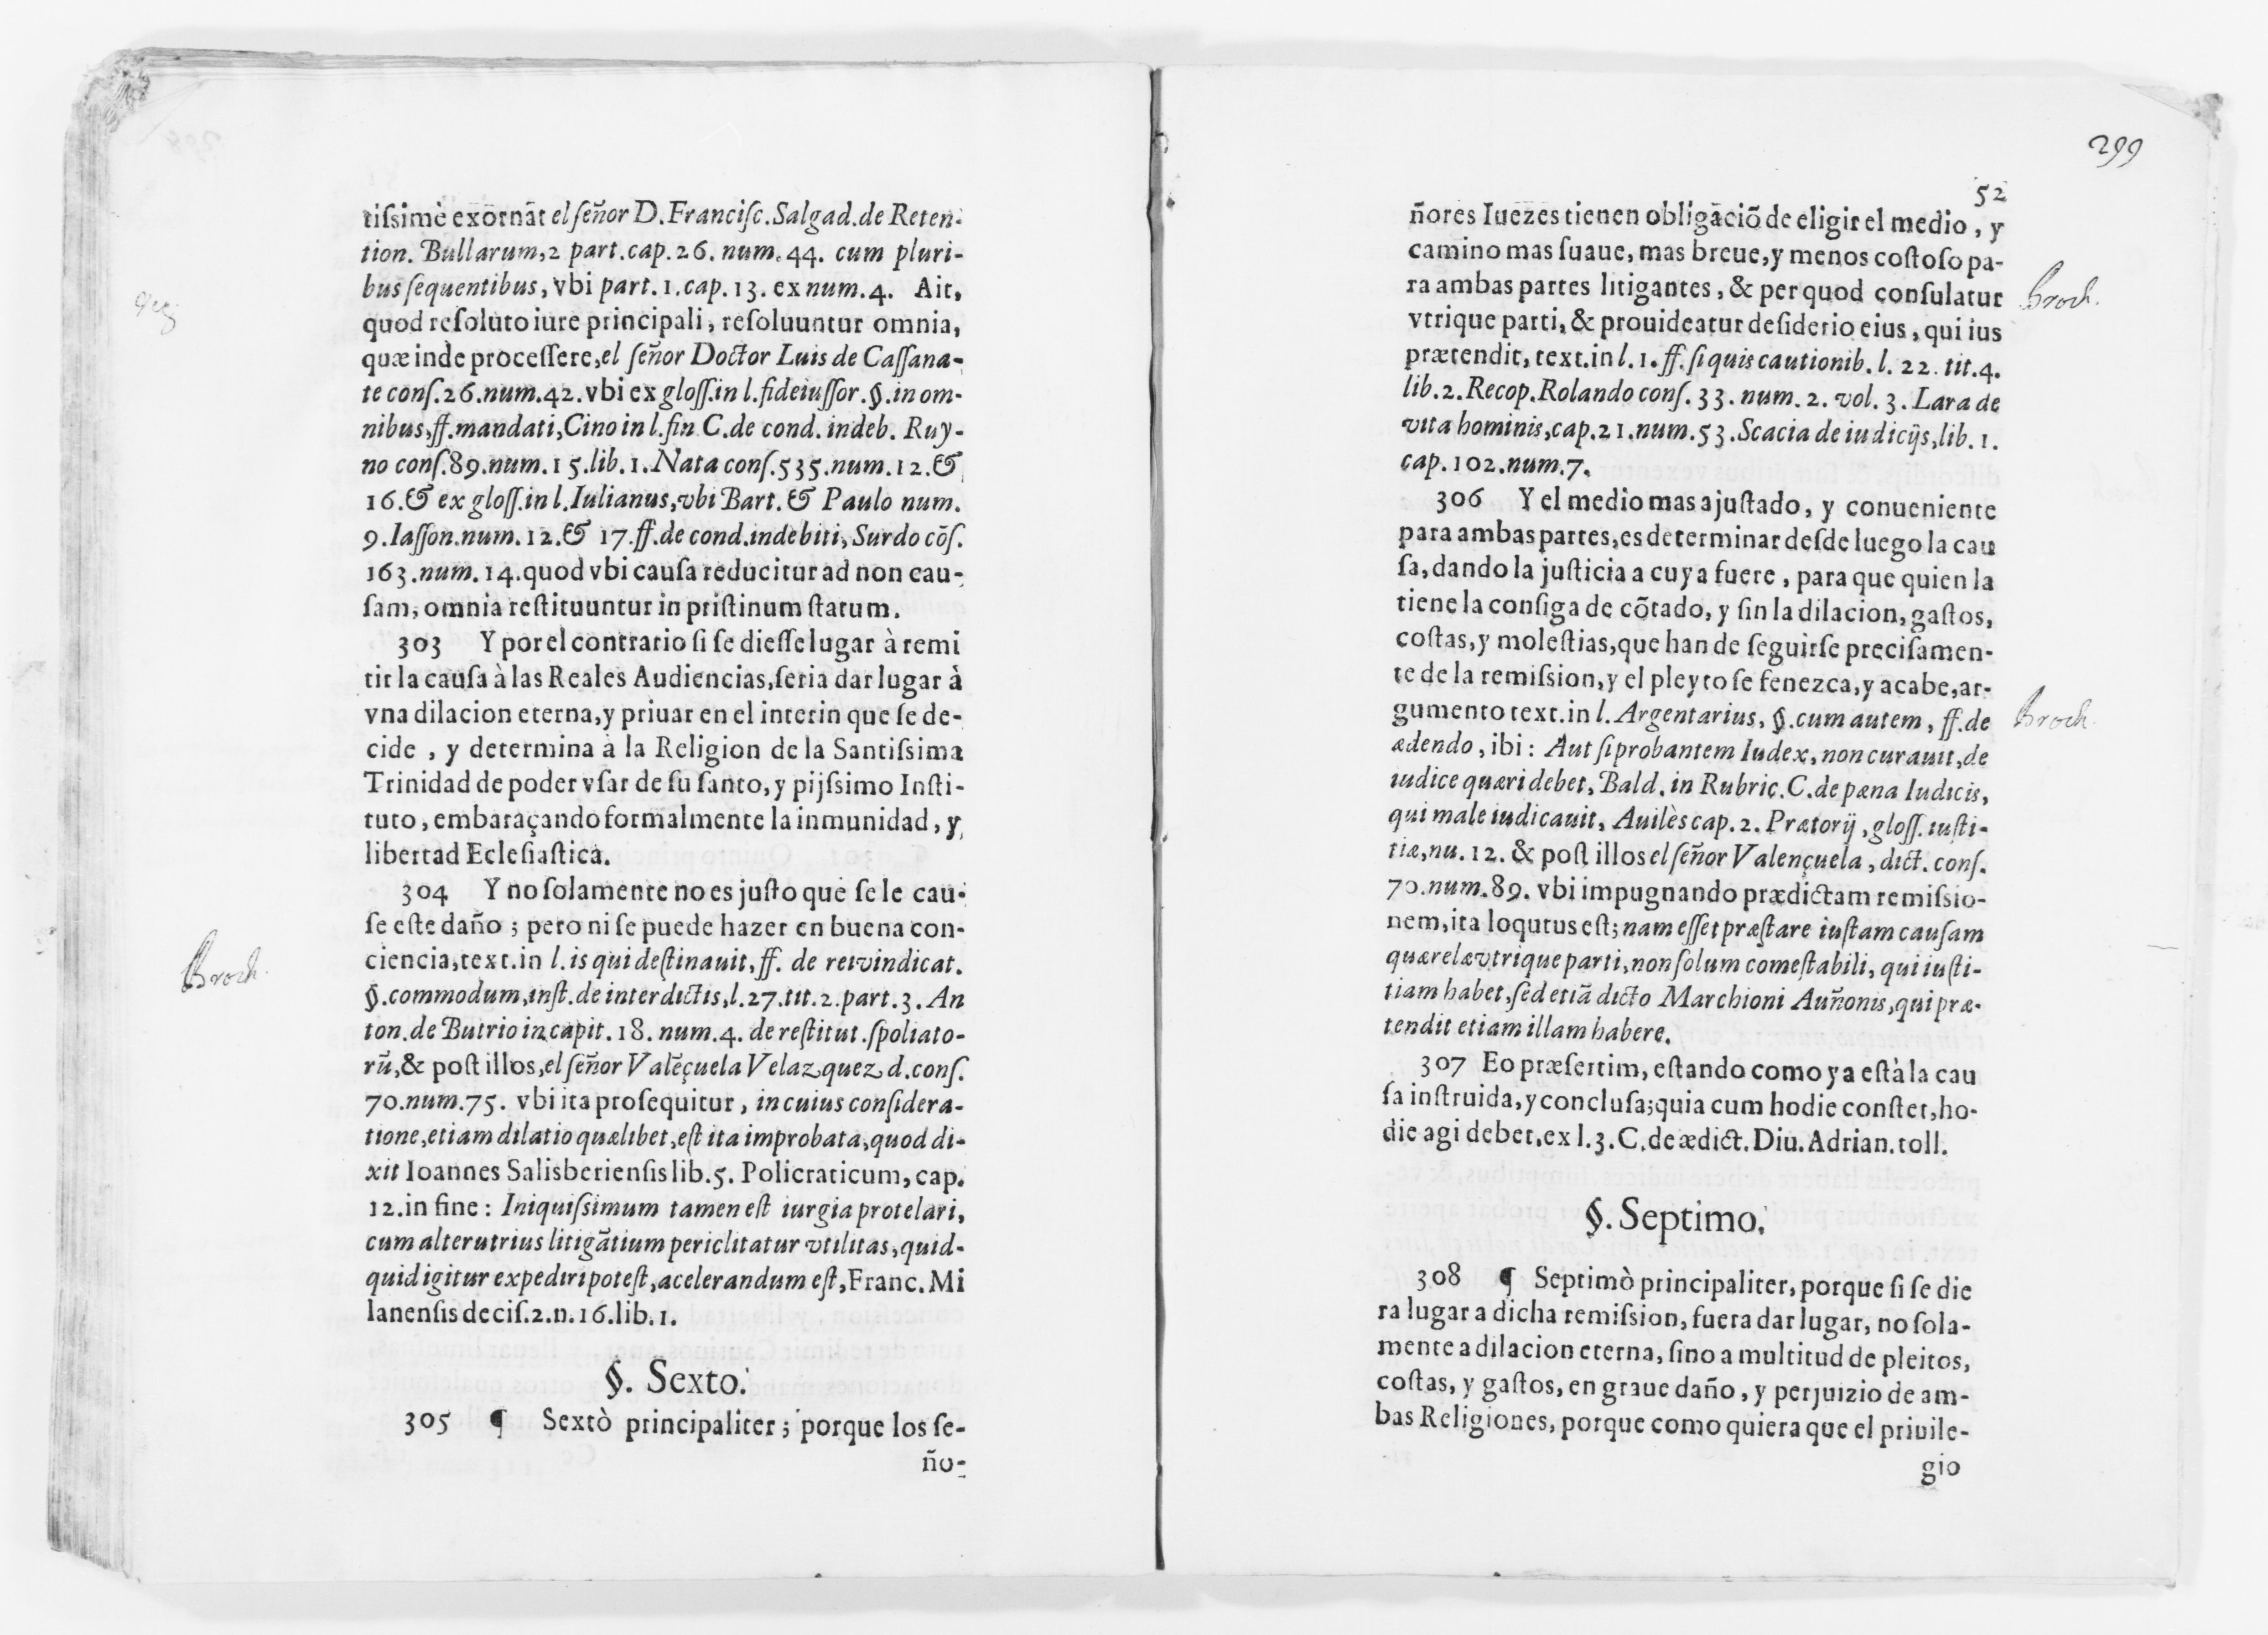 tiſsimè exornãt el ſeñor D. Franciſc. Salgad. de Reten-
tion. Bullarum, 2 part. cap. 26. num. 44. cum pluri-
bus ſequentibus, vbi part. 1. cap. 13. ex num. 4. Ait,
quod reſoluto iure principali, reſoluuntur omnia,
quæ inde proceſſere, el ſeñor Doctor Luis de Caſſana-
te conſ. 26. num. 42. vbi ex gloſſ. in l. fideiuſſor. §. in om-
nibus, ff. mandati, Cino in l. fin C. de cond. indeb. Ruy-
no conſ. 89. num. 15. lib. 1. Nata conſ. 535. num. 12. &
16. & ex gloſſ. in l. Iulianus, vbi Bart. & Paulo num.
9. Iaſſon. num. 12. & 17. ff. de cond. indebiti, Surdo cõſ.
163. num. 14. quod vbi cauſa reducitur ad non cau-
ſam, omnia reſtituuntur in priſtinum ſtatum.
303 Y por el contrario ſi ſe dieſſe lugar à remi
tir la cauſa à las Reales Audiencias, ſeria dar lugar à
vna dilacion eterna, y priuar en el interin que ſe de-
cide , y determina à la Religion de la Santiſsima
Trinidad de poder vſar de ſu ſanto, y pijſsimo Inſti-
tuto, embaraçando formalmente la inmunidad, y
libertad Ecleſiaſtica.
304 Y no ſolamente no es juſto que ſe le cau-
ſe eſte daño ; pero ni ſe puede hazer en buena con-
Broch.
ciencia, text. in l. is qui deſtinauit, ff. de reivindicat.
§. commodum, inſt. de interdictis, l. 27. tit. 2. part. 3. An
ton. de Butrio in capit. 18. num. 4. de reſtitut. ſpoliato-
rũ, & poſt illos, el ſeñor Valẽçuela Velazquez d. conſ.
70. num. 75. vbi ita proſequitur, in cuius conſidera-
tione, etiam dilatio quælibet, eſt ita improbata, quod di-
xit Ioannes Salisberienſis lib. 5. Policraticum, cap.
12. in fine : Iniquiſsimum tamen eſt iurgia protelari,
cum alterutrius litigãtium periclitatur vtilitas, quid-
quid igitur expediri poteſt, acelerandum eſt, Franc. Mi
lanenſis deciſ. 2. n. 16. lib. 1.
§. Sexto.
305 ¶ Sextò principaliter ; porque los ſe-
ño-
299
52
ñores Iuezes tienen obligãciõ de eligir el medio , y
camino mas ſuaue, mas breue, y menos coſtoſo pa-
ra ambas partes litigantes, & per quod conſulatur
Broch.
vtrique parti, & prouideatur deſiderio eius, qui ius
prætendit, text. in l. 1. ff. ſi quis cautionib. l. 22. tit. 4.
lib. 2. Recop. Rolando conſ. 33. num. 2. vol. 3. Lara de
vita hominis, cap. 21. num. 53. Scacia de iudicijs, lib. 1.
cap. 102. num. 7.
306 Y el medio mas ajuſtado, y conueniente
para ambas partes, es determinar deſde luego la cau
ſa, dando la juſticia a cuya fuere , para que quien la
tiene la conſiga de cõtado, y ſin la dilacion, gaſtos,
coſtas, y moleſtias, que han de ſeguirſe preciſamen-
te de la remiſsion, y el pleyto ſe fenezca, y acabe, ar-
gumento text. in l. Argentarius, §. cum autem, ff. de
Broch.
ædendo, ibi : Aut ſi probantem Iudex, non curauit, de
iudice quæri debet, Bald. in Rubric. C. de pæna Iudicis,
qui male iudicauit, Auilès cap. 2. Prætorij, gloſſ. iuſti-
tiæ, nu. 12. & poſt illos el ſeñor Valençuela, dict. conſ.
70. num. 89. vbi impugnando prædictam remiſsio-
nem, ita loqutus eſt; nam eſſet præſtare iuſtam cauſam
quærelæ vtrique parti, non ſolum comeſtabili, qui iuſti-
tiam habet, ſed etiã dicto Marchioni Auñonis, qui præ-
tendit etiam illam habere.
307 Eo præſertim, eſtando como ya eſtà la cau
ſa inſtruida, y concluſa; quia cum hodie conſtet, ho-
die agi debet, ex l. 3. C. de ædict. Diu. Adrian. toll.
§. Septimo.
308 ¶ Septimò principaliter, porque ſi ſe die
ra lugar a dicha remiſsion, fuera dar lugar, no ſola-
mente a dilacion eterna, ſino a multitud de pleitos,
coſtas, y gaſtos, en graue daño, y perjuizio de am-
bas Religiones, porque como quiera que el priuile-
gio